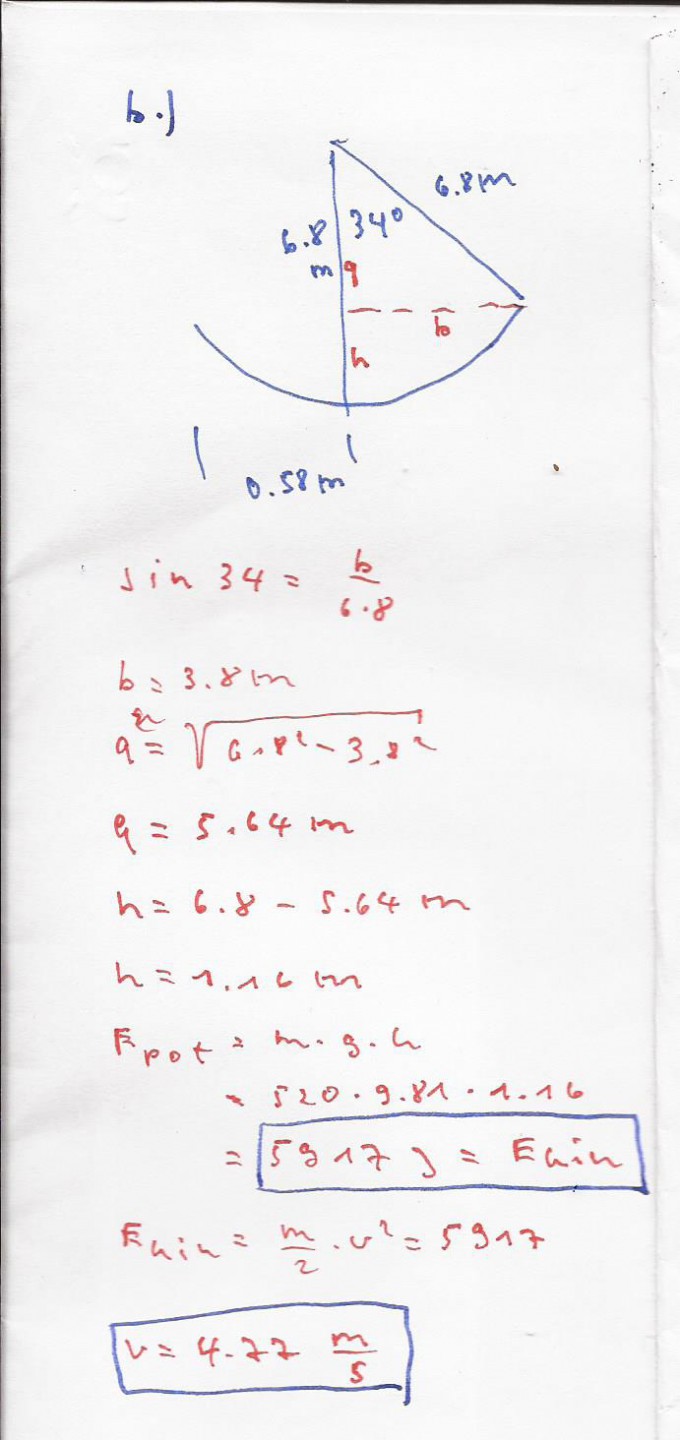 b.)
6.8m
6.8 34°
m q
b
h
0.58m
sin 34 = b/6.8
b = 3.8m
q = √6.8² - 3.8²
q = 5.64 m
h = 6.8 - 5.64 m
h = 1.16 m
Epot = m. g. h
= 520 . 9.81 . 1.16
= 5917 J = Ekin
Ekin = m/2 . v² = 5917
v = 4.77 m/s